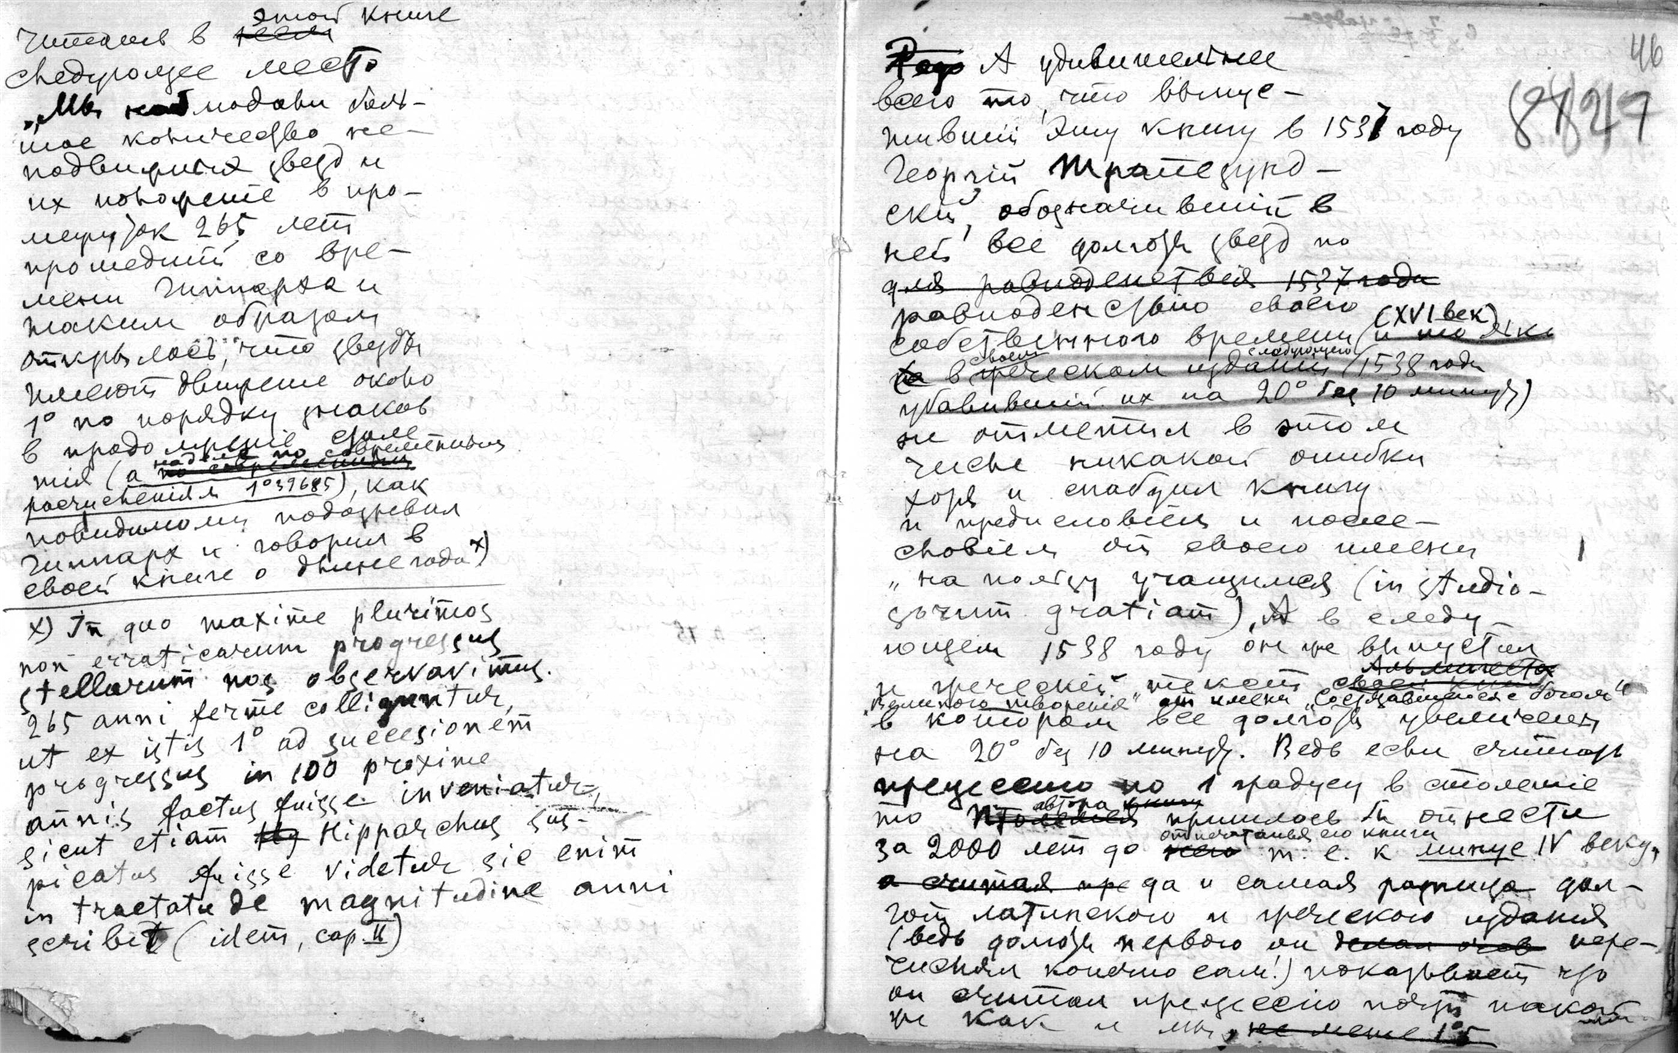 этой книге
Читаем в
следующее место
„Мы наблюдали боль-
шое количество не-
подвижных звезд и
их положение в про-
межуток 265 лет
прошедший со вре-
мени Гиппарха и
таким образом
открылось, что звезды
имеют движение около
1° по порядку знаков
в продолжение столе
тия (а надо по современным
расчислениям 1°39685), как
повидимому подозревал
Гиппарх и говорил в
своей книге о длине года x)
x) In quo maxime plurimos
non erraticarum progressus
stellarum nos observavimus.
265 anni ferme colliguntur,
ut ex istis 1° ad successionem
progressus in 100 proxime
annis factus fuisse inveniatur,
sicut etiam Hipparchus sus-
picatus fuisse videtur sic enim
in tractatu de magnitudine anni
scribit (idem, cap II)
46
А удивительнее
всего то, что выпус-
тивший эту книгу в 1537 году
Георгий Трапезунд-
ский, обозначивший в
ней все долготы звезд по
для равноденствия 1537 года
равноденствию своего
собственного времени (XVI век)
в своем греческом издании следующего 1538 года
убавивший их на 20° без 10 минут)
не отметил в этом
числе никакой ошибки
хотя и снабдил книгу
и предисловием и после-
словием от своего имени
„на пользу учащимся (in studio-
sorum gratiam). А в следу-
ющем 1538 году он же выпустил
и греческий текст
„Великого творения" от имени „Состязавшегося с богом"
в котором все долготы увеличены
на 20° без 10 минут. Ведь если считать
прецессию по 1 градусу в столетие
то автора пришлось бы отнести
за 2000 лет до отпечатанья его книги т. е. к минус IV веку,
да и самая разница дол-
гот латинского и греческого издания
(ведь долготы первого он пере-
числял конечно сам!) показывает что
он считал прецессию почти такой
же как и мы,